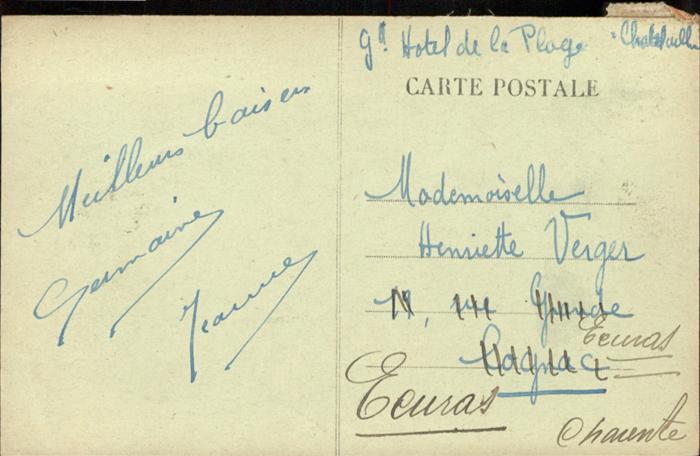 Gd Hotel de la Plage Chatelaillon
CARTE POSTALE
Meilleurs baisers
Germaine
Jeanne
Mademoiselle
Henriette Verger
12, rue Grande
Cognac
Ecuras
Ecuras
Charente